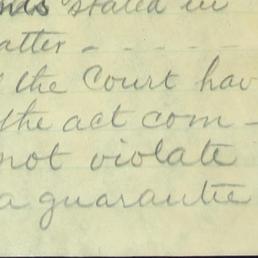 stated in
atter - - - - -
the Court hav
the act com -
not violate
a guarantie